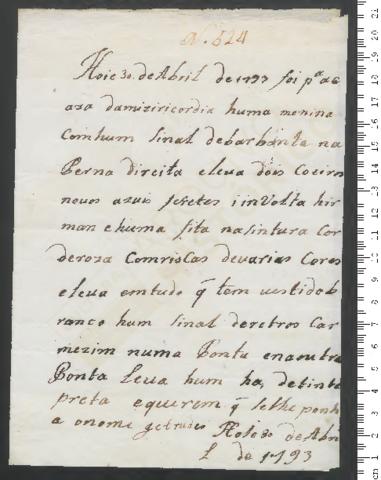 N. 524
Hoie 30. de Abril de 1793 foi pª a c
aza da miziricordia huma menina
Com hum sinal de barbanta na
Perna direita e leua dois Coeiros
nouos azuis i in Volta hir
man e huma fita na sintura Cor
de roza Com riscas de uarias Cores
e leua em tudo q̃ tem uestido b
ranco hum sinal de retros Car
mezim numa Ponta e na outra
Ponta Leua hum ha, de tinta
preta e querem q̃ se lhe ponh
a o nome getrudes Hoie 30 de Abri
L de 1793
cm 1 2 3 4 5 6 7 8 9 10 11 12 13 14 15 16 17 18 19 20 21